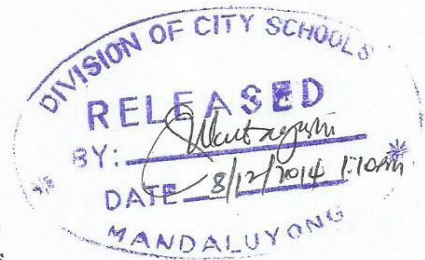 DIVISION OF CITY SCHOOLS
RELEASED
BY:
DATE 8/12/2014 1:10PM
MANDALUYONG